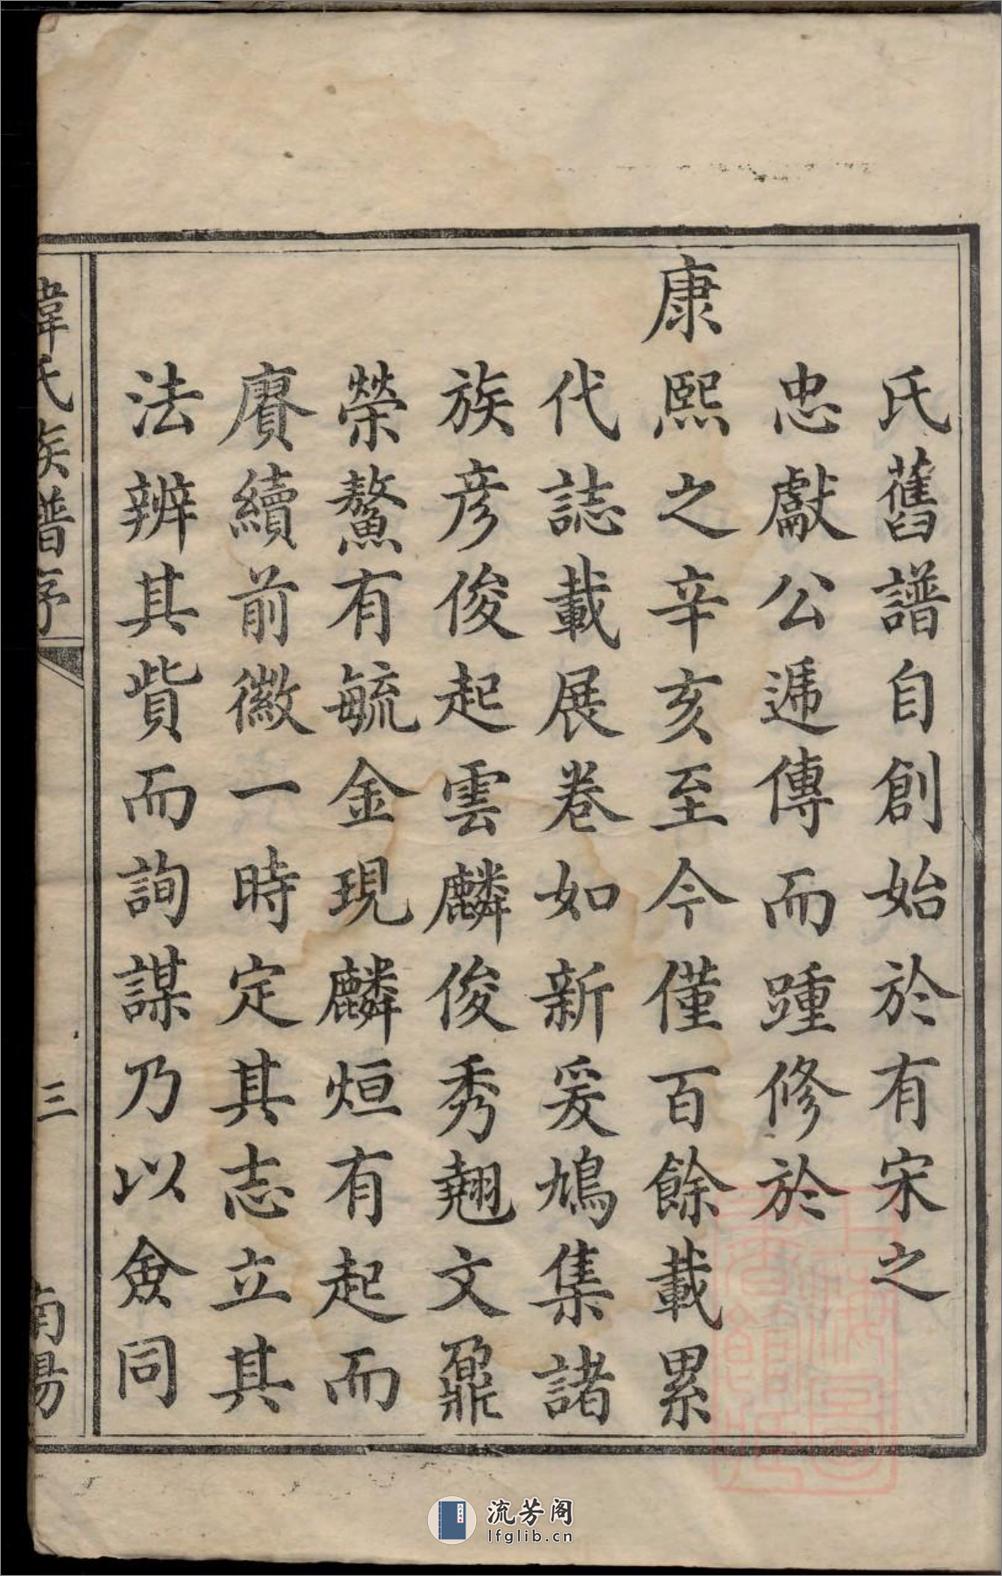 氏舊譜自創始於有宋之
忠獻公遞傳而踵修於
康熙之辛亥至今僅百餘載累
代誌載展卷如新爰鳩集諸
族彦俊起雲麟俊秀翹文鼐
榮鰲有毓金現麟烜有起而
賡續前徽一時定其志立其
法辨其貲而詢謀乃以僉同
韋氏族譜序
三
南陽
流芳阁
lfglib.cn